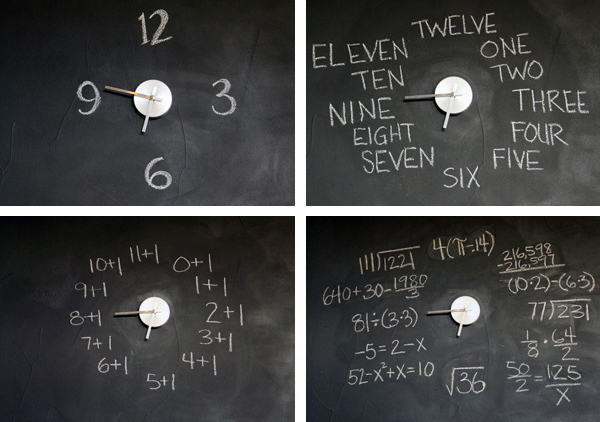 12
9
3
6
TWELVE
ELEVEN
ONE
TEN
TWO
NINE
THREE
EIGHT
FOUR
SEVEN
FIVE
SIX
11+1
10+1
0+1
9+1
1+1
8+1
2+1
7+1
3+1
6+1
4+1
5+1
111)1221
4(π-.14)
216,598
-216,597
640+30-1980/3
(0·2)-(6·3)
81÷(3·3)
77)231
-5=2-x
1/8·64/2
52-x²+x=10
√36
50/2=125/x